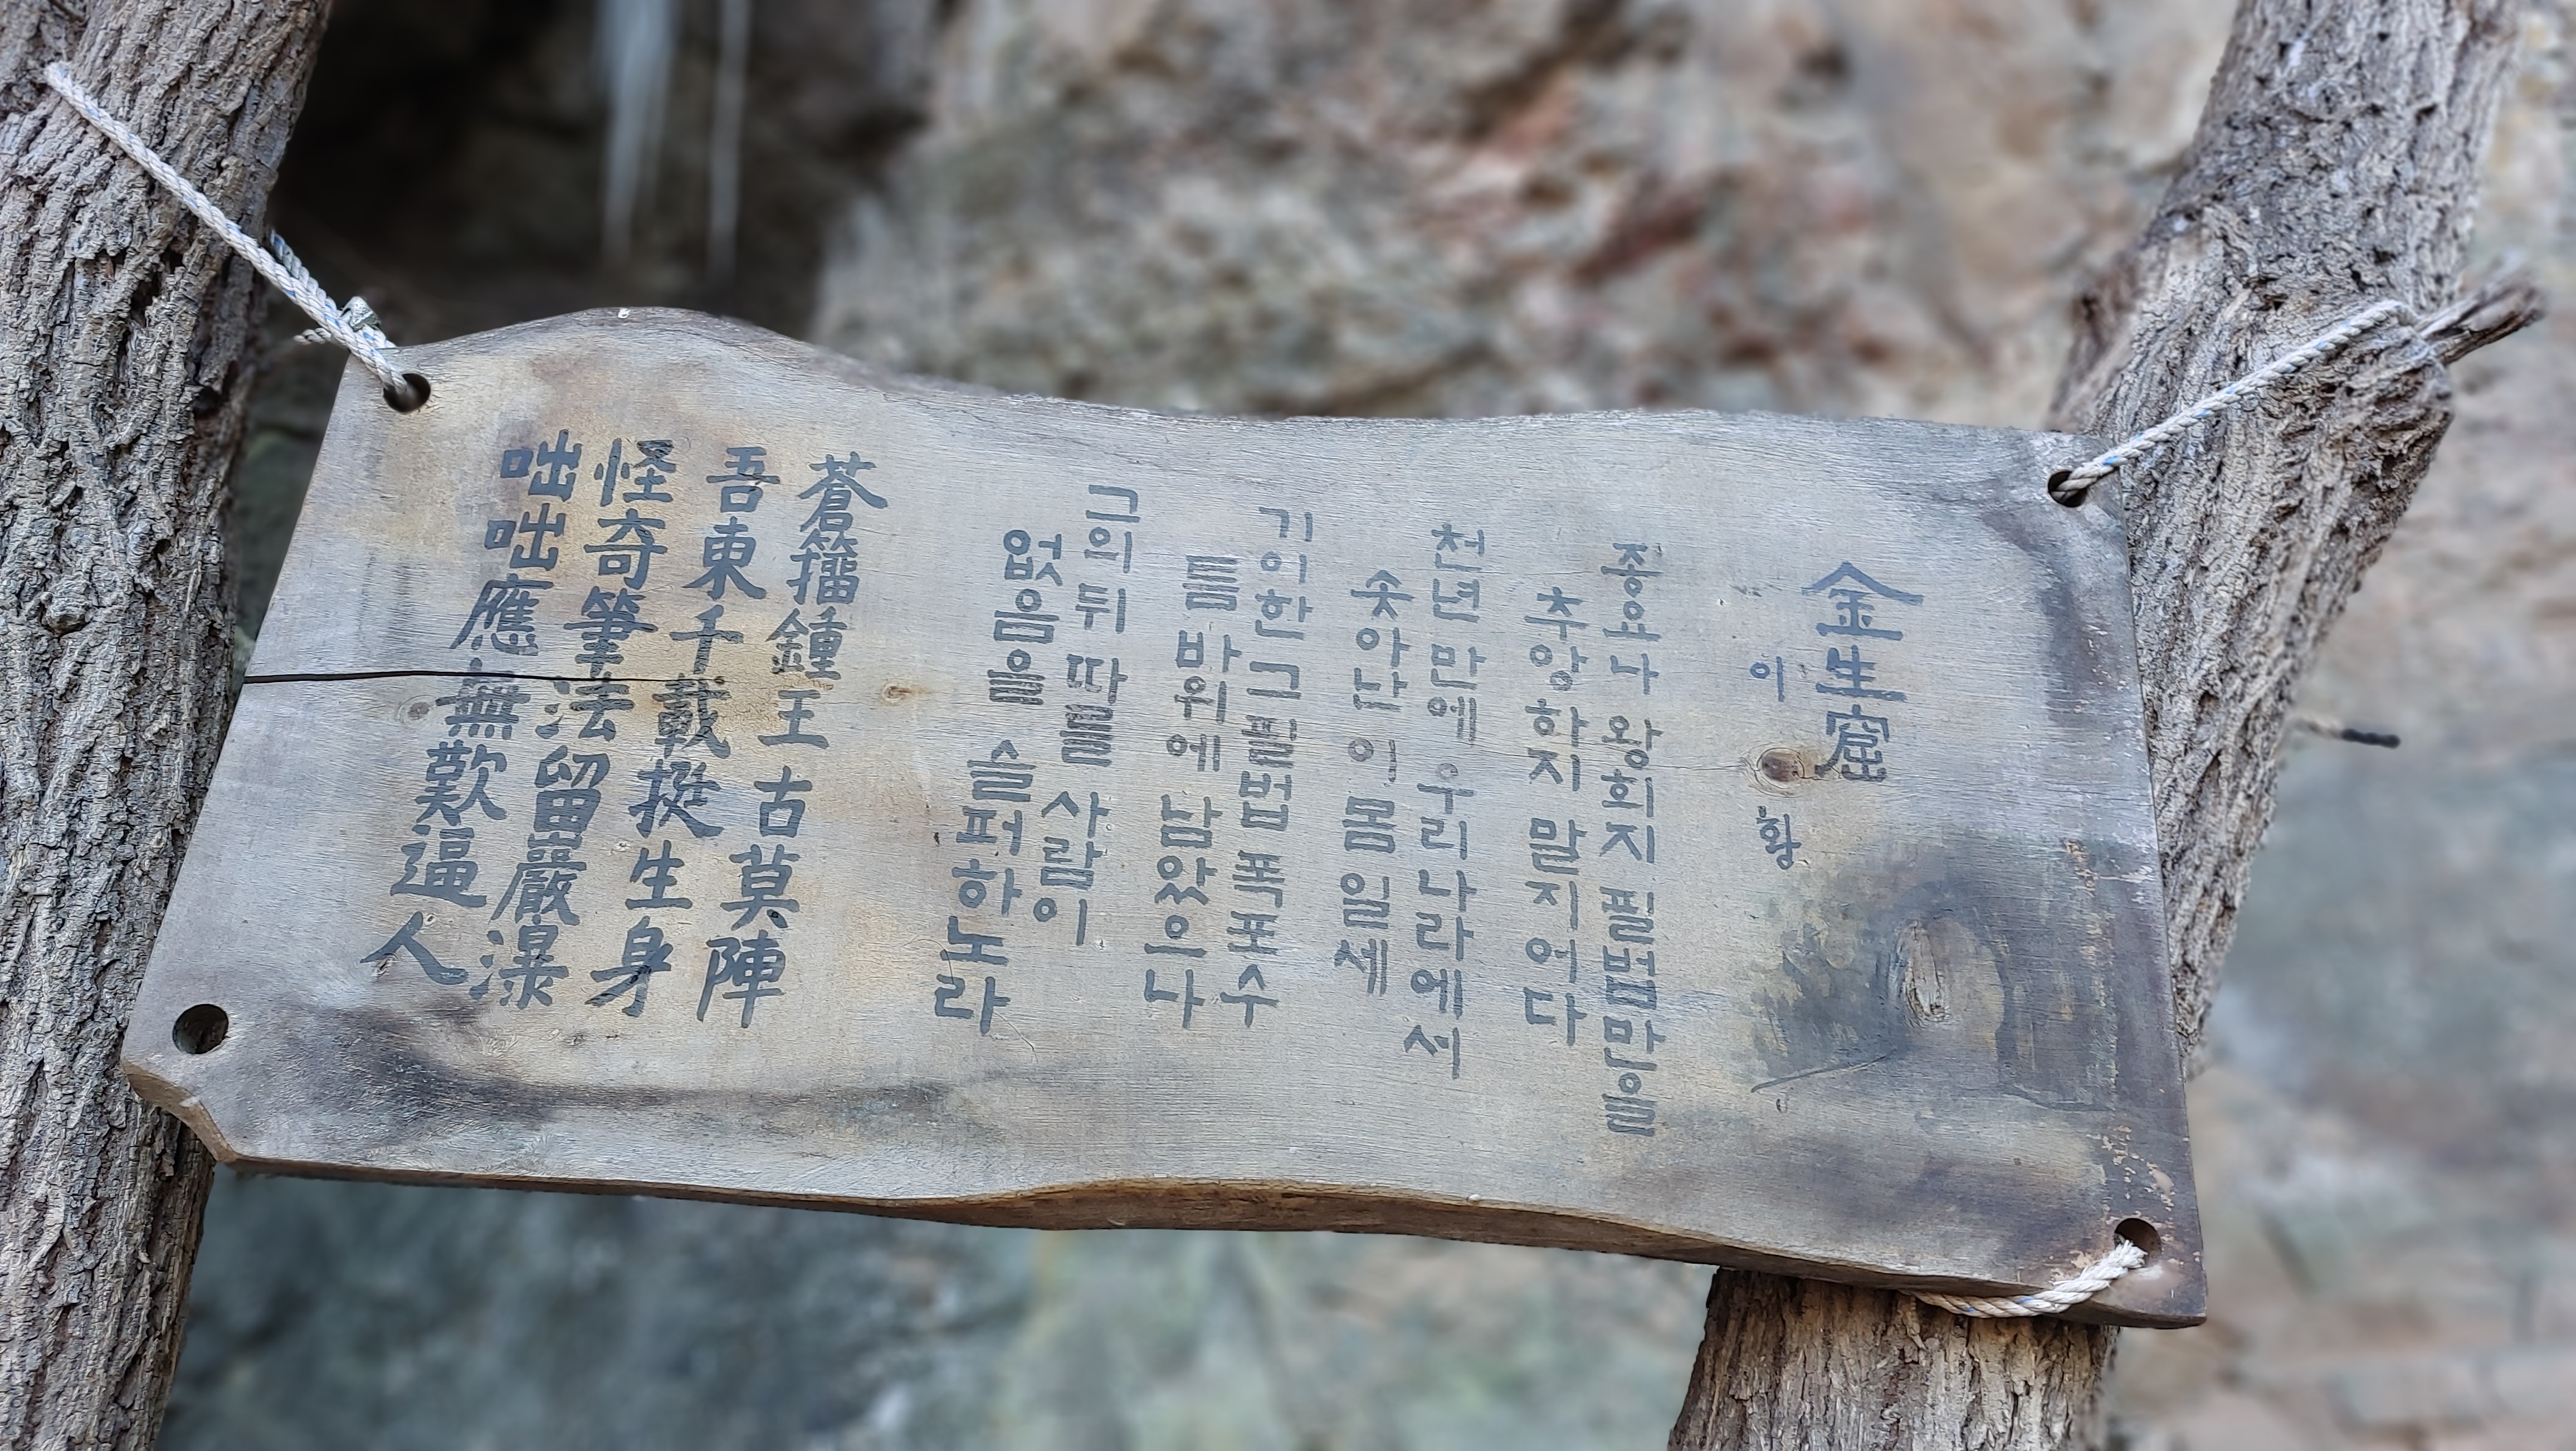 金生窟
이 황
종요나 왕희지 필법만을
추앙하지 말지어다
천년만에 우리나라에서
솟아난 이 몸일세
기이한 그 필법 폭포수
틈 바위에 남았으나
그의 뒤 따를 사람이
없음을 슬퍼하노라
蒼籒鍾王古莫陣
吾東千載挺生身
怪奇筆法留巖瀑
咄咄應無歎逼人